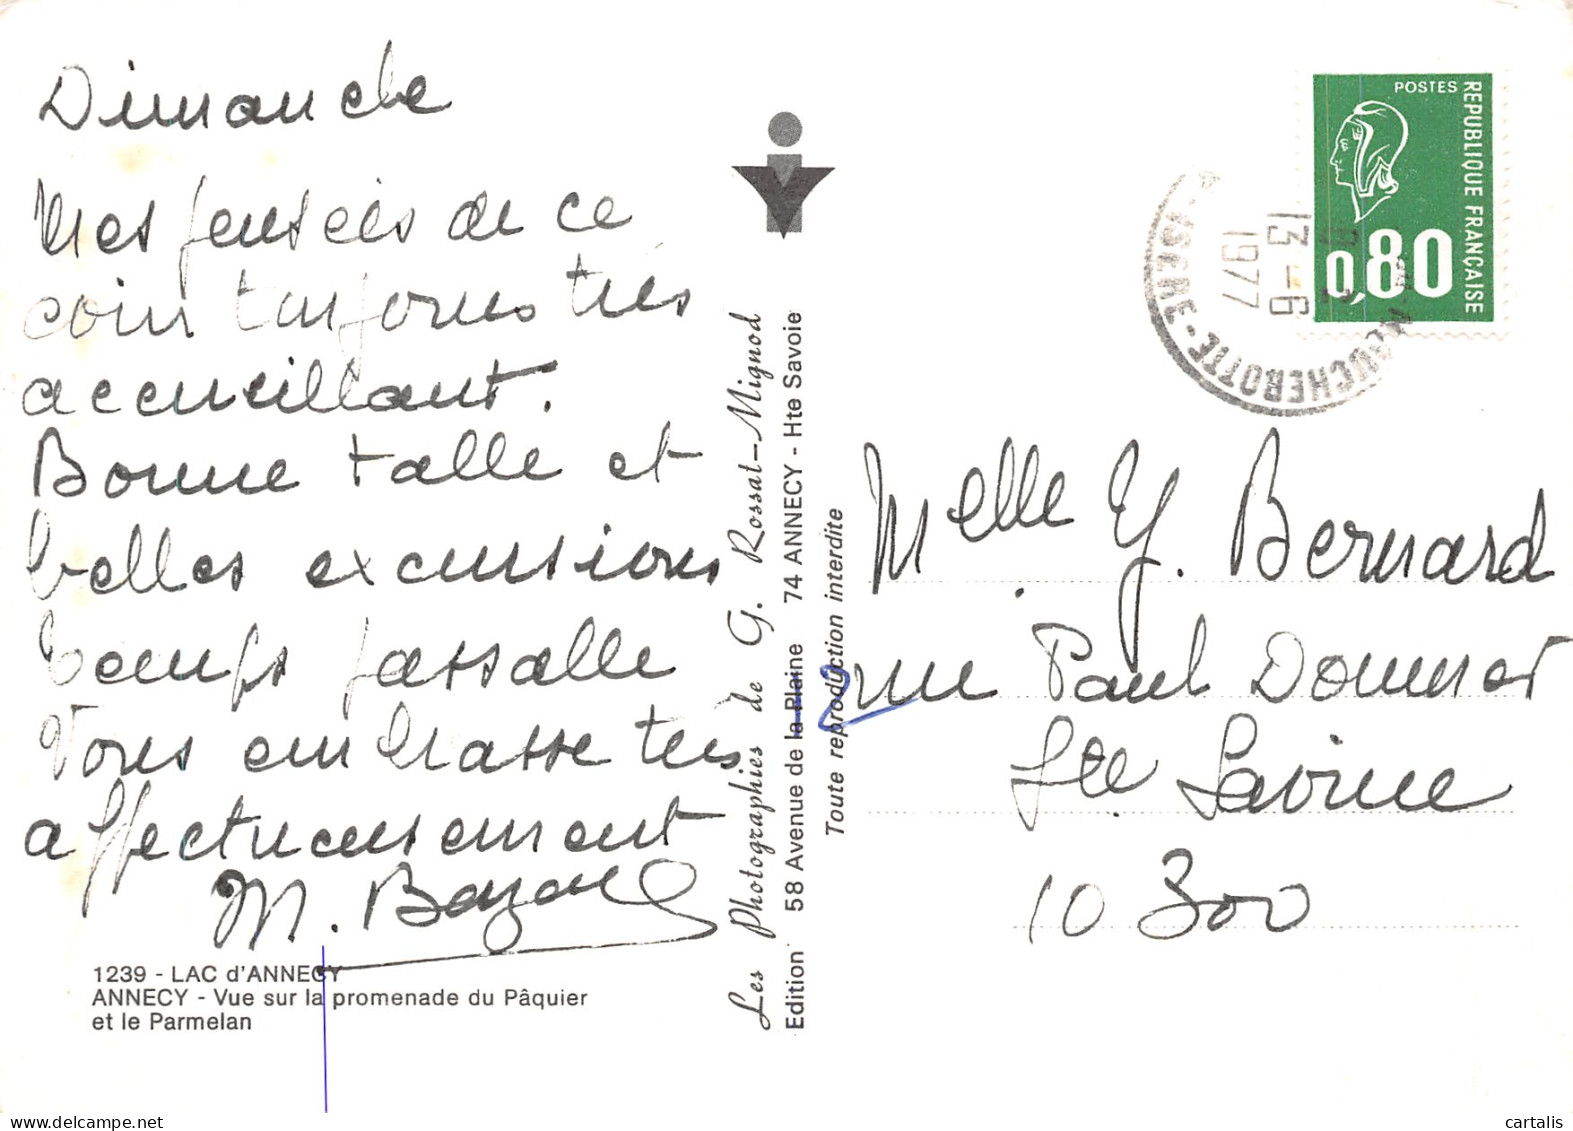 Dimanche
Mes pensées de ce
coin toujours très
accueillant.
Bonne salle et
belles excursions
temps passable
Vous embrasse très
affectueusement
M.
1239 - LAC d'ANNECY
ANNECY - Vue sur la promenade du Pâquier
et le Parmelan
Les Photographies de G. Rossat-Mignod
Edition 58 Avenue de la Plaine 74 ANNECY - Hte Savoie
Toute reproduction interdite
POSTES
REPUBLIQUE FRANÇAISE
0,80
13-6
1977
ISERE
Melle Y. Bernard
2 rue Paul Doumer
Ste Savine
10 300
cartalis